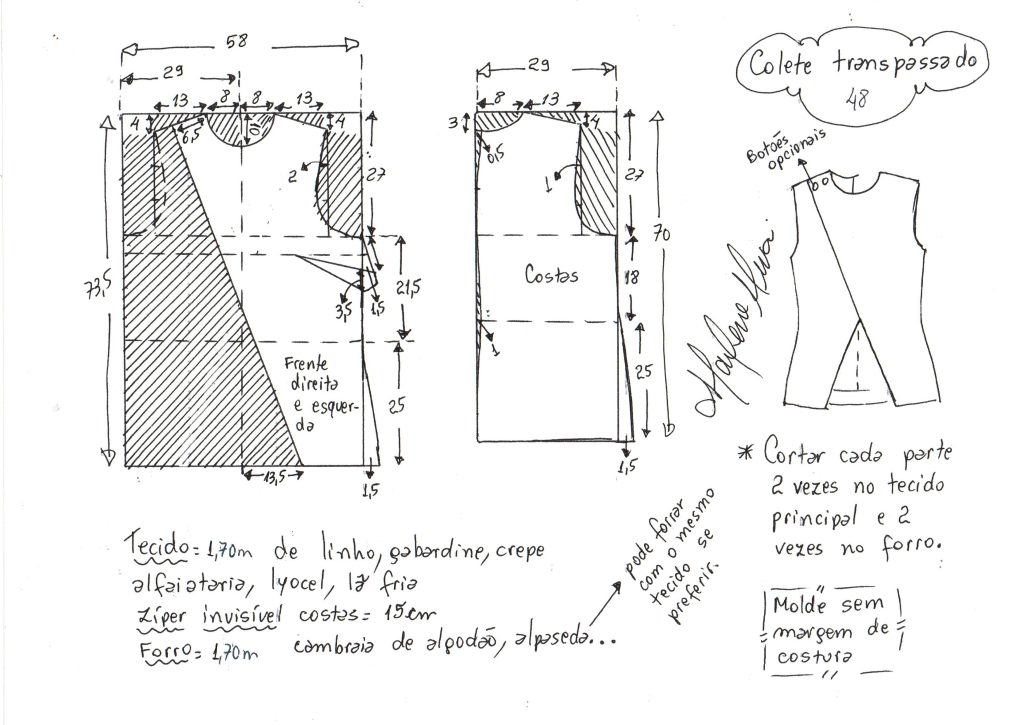 Colete transpassado
48
58
29
13
8
8
13
4
6,5
10
4
2
27
73,5
3,5
1,5
21,5
Frente
direita
e esquer-
da
25
13,5
1,5
29
8
13
3
0,5
4
1
27
70
Costas
18
1
25
1,5
Botões
opcionais
* Cortar cada parte
2 vezes no tecido
principal e 2
vezes no forro.
Tecido = 1,70m de linho, gabardine, crepe
alfaiataria, lyocel, lã fria
Zíper invisível costas = 15cm
Forro = 1,70m cambraia de algodão, alpaseda...
pode forrar
com o mesmo
tecido se
preferir.
Molde sem
margem de
costura